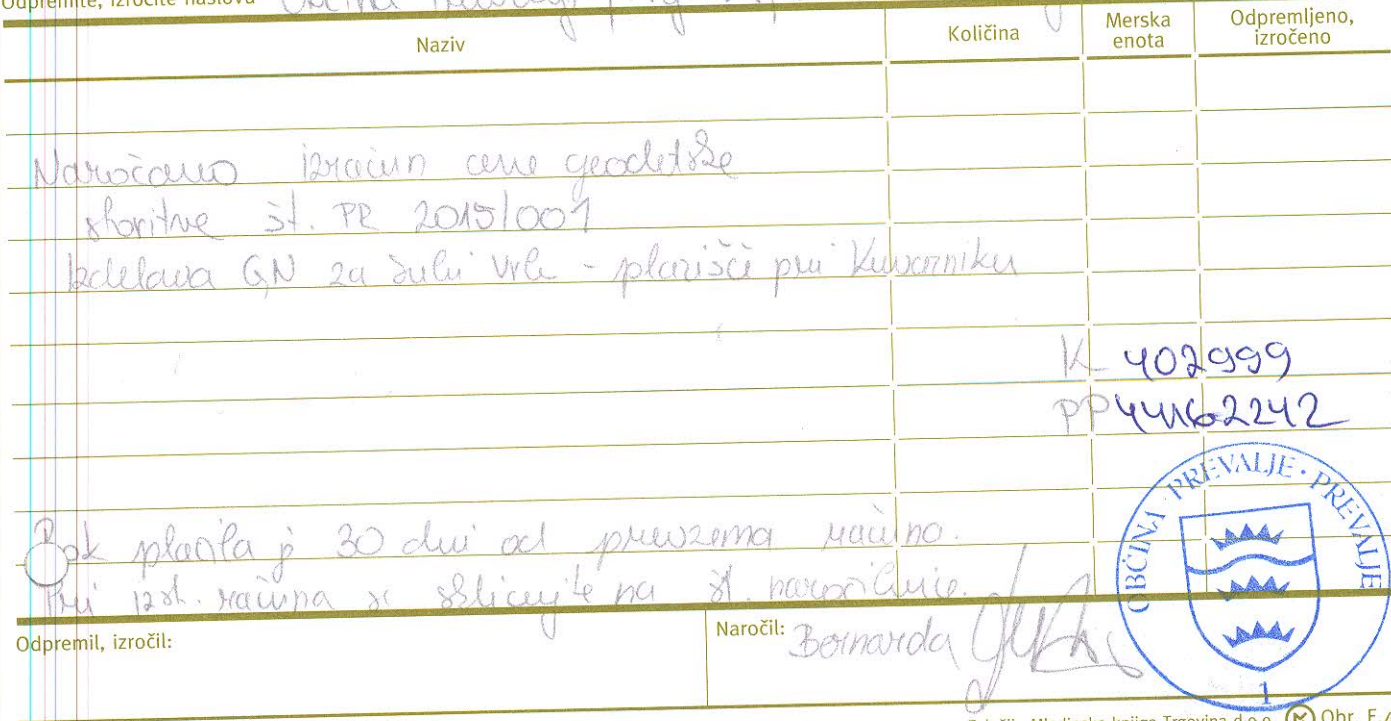 Odpremite, izročite naslova Občina
Naziv
Količina
Merska enota
Odpremljeno, izročeno
Naročamo izračun cene geodetske
storitve št. PR 2015/001
Izdelava GN za Šulni vrh - plazišči pri Kuvorniku
K 402999
PP 44162242
Rok plačila je 30 dni od prevzema računa.
Pri izst. računa se sklicujte na št. naročilnice.
Odpremil, izročil:
Naročil: Bernarda
OBČINA PREVALJE · PREVALJE
1
Mladinska knjiga Trgovina d.o.o.
Obr.